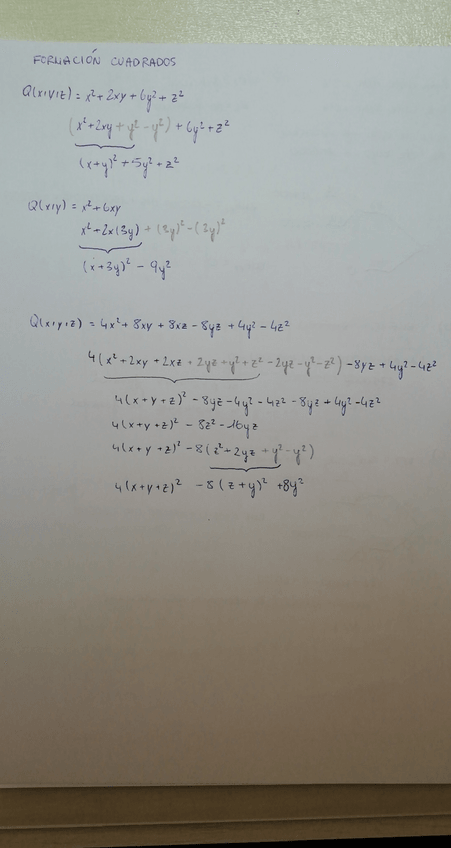 FORMACIÓN CUADRADOS
Q(x,y,z) = x² + 2xy + 6y² + z²
(x² + 2xy + y² - y²) + 6y² + z²
(x+y)² + 5y² + z²
Q(x,y) = x² + 6xy
x² + 2x(3y) + (3y)² - (3y)²
(x+3y)² - 9y²
Q(x,y,z) = 4x² + 8xy + 8xz - 8yz + 4y² - 4z²
4(x² + 2xy + 2xz + 2yz + y² + z² - 2yz - y² - z²) - 8yz + 4y² - 4z²
4(x+y+z)² - 8yz - 4y² - 4z² - 8yz + 4y² - 4z²
4(x+y+z)² - 8z² - 16yz
4(x+y+z)² - 8(z² + 2yz + y² - y²)
4(x+y+z)² - 8(z+y)² + 8y²